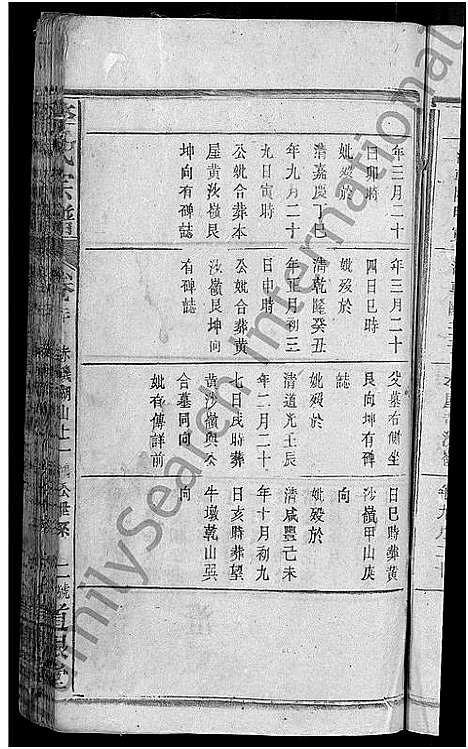 年三月二十
日卯時
妣殁於
清嘉慶丁巳
年九月二十
九日寅時
公妣合葬本
屋黄沙嶺艮
坤向有碑誌
年三月二十
四日巳時
妣殁於
清乾隆癸丑
年正月初三
日申時
公妣合葬黄
沙嶺艮坤向
有碑誌
父墓右側坐
艮向坤有碑
誌
妣殁於
清道光壬辰
年二月二十
七日戌時葬
黄沙嶺與公
合墓同向
妣有傳詳前
日巳時葬黄
沙嶺甲山庚
向
妣殁於
清咸豐己未
年十月初九
日亥時葬望
牛墩乾山巽
向
氏宗譜
赤磡湖山上
二號
FamilySearch International